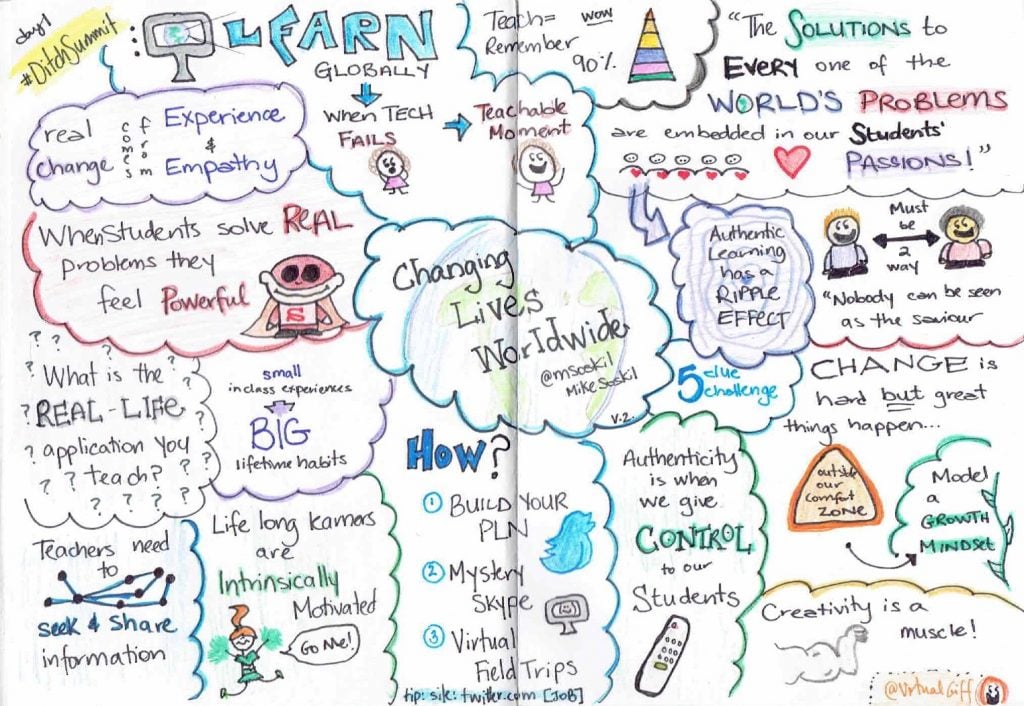 day 1
#DitchSummit
LEARN
GLOBALLY
When TECH
FAILS
Teachable
Moment
Teach=
Remember
wow
90%
"The SOLUTIONS to
EVERY one of the
WORLD'S PROBLEMS
are embedded in our Students'
PASSIONS!"
real
change
comes
from
Experience
&
Empathy
When Students solve REAL
problems they
feel Powerful
S
Changing
Lives
Worldwide
@msoskil
Mike Soskil
v.2.
Authentic
Learning
has a
RIPPLE
EFFECT
Must
be
2
way
"Nobody can be seen
as the saviour
? ? ? ? ?
? What is the ?
? REAL-LIFE ?
? application you ?
? ? teach? ? ?
? ? ? ?
small
in class experiences
BIG
lifetime habits
5 clue
challenge
CHANGE is
hard but great
things happen...
outside
our
comfort
ZONE
Model
a
GROWTH
MINDSET
HOW?
1 BUILD YOUR
PLN
2 Mystery
Skype
3 Virtual
Field Trips
tip: site: twitter.com [JOB]
Authenticity
is when
we give
CONTROL
to our
Students
Teachers need
to
seek & share
information
Life long learners
are
Intrinsically
Motivated
Go Me!
Creativity is a
muscle!
@VirtualGiff